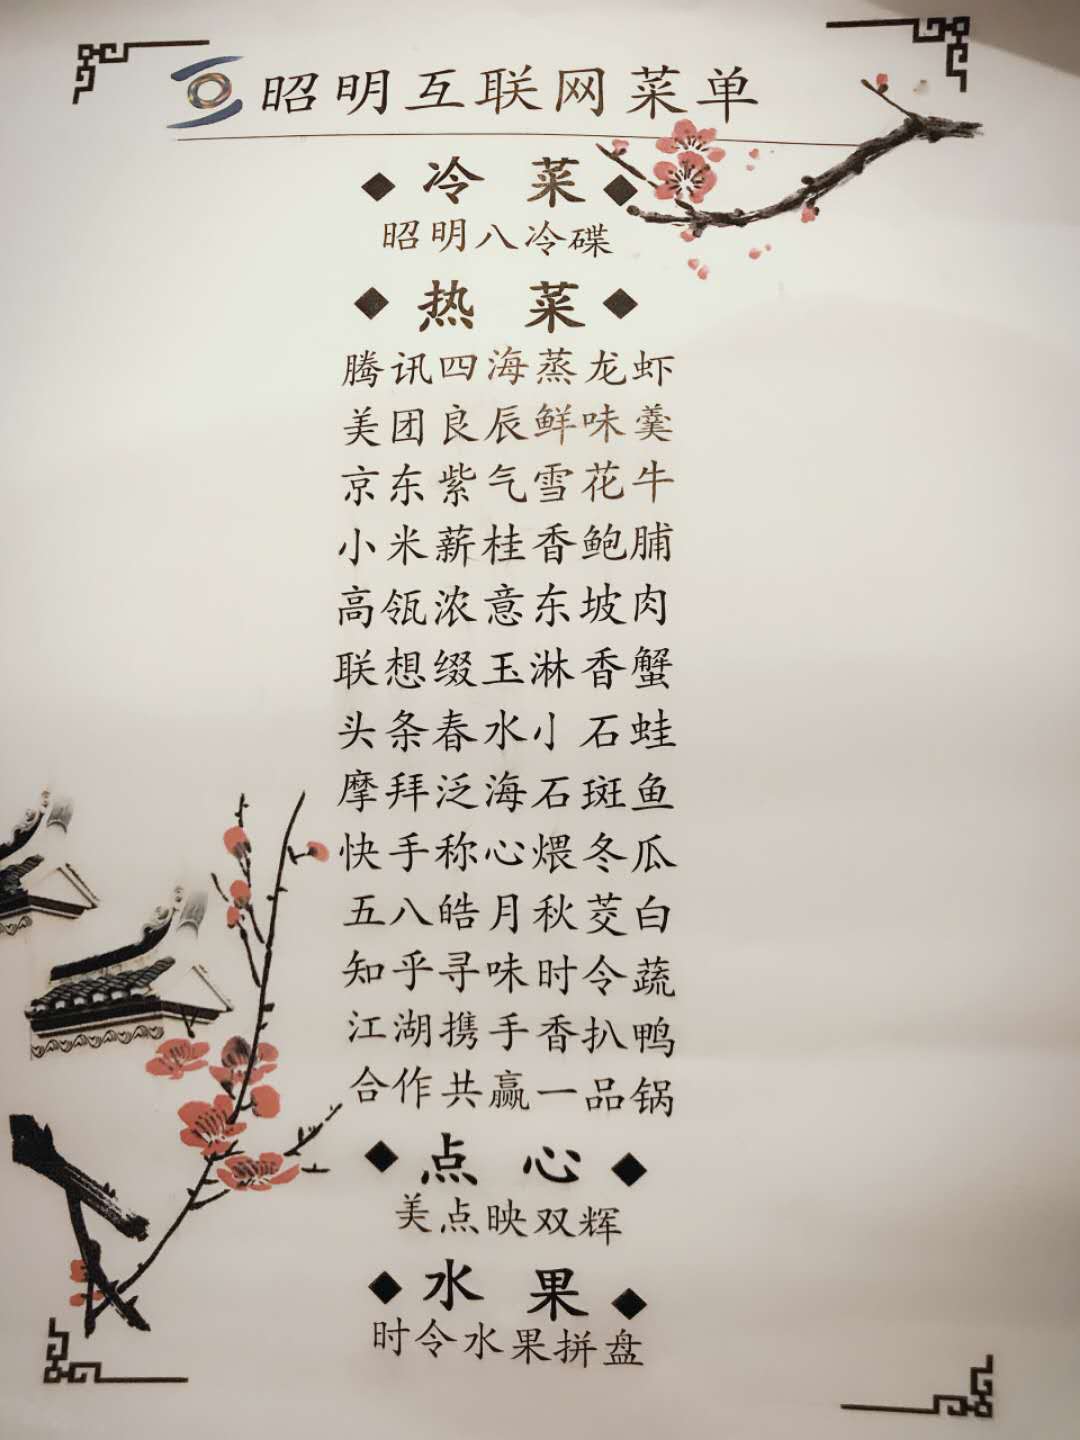 昭明互联网菜单
冷菜
昭明八冷碟
热菜
腾讯四海蒸龙虾
美团良辰鲜味羹
京东紫气雪花牛
小米薪桂香鲍脯
高瓴浓意东坡肉
联想缀玉淋香蟹
头条春水小石蛙
摩拜泛海石斑鱼
快手称心煨冬瓜
五八皓月秋茭白
知乎寻味时令蔬
江湖携手香扒鸭
合作共赢一品锅
点心
美点映双辉
水果
时令水果拼盘